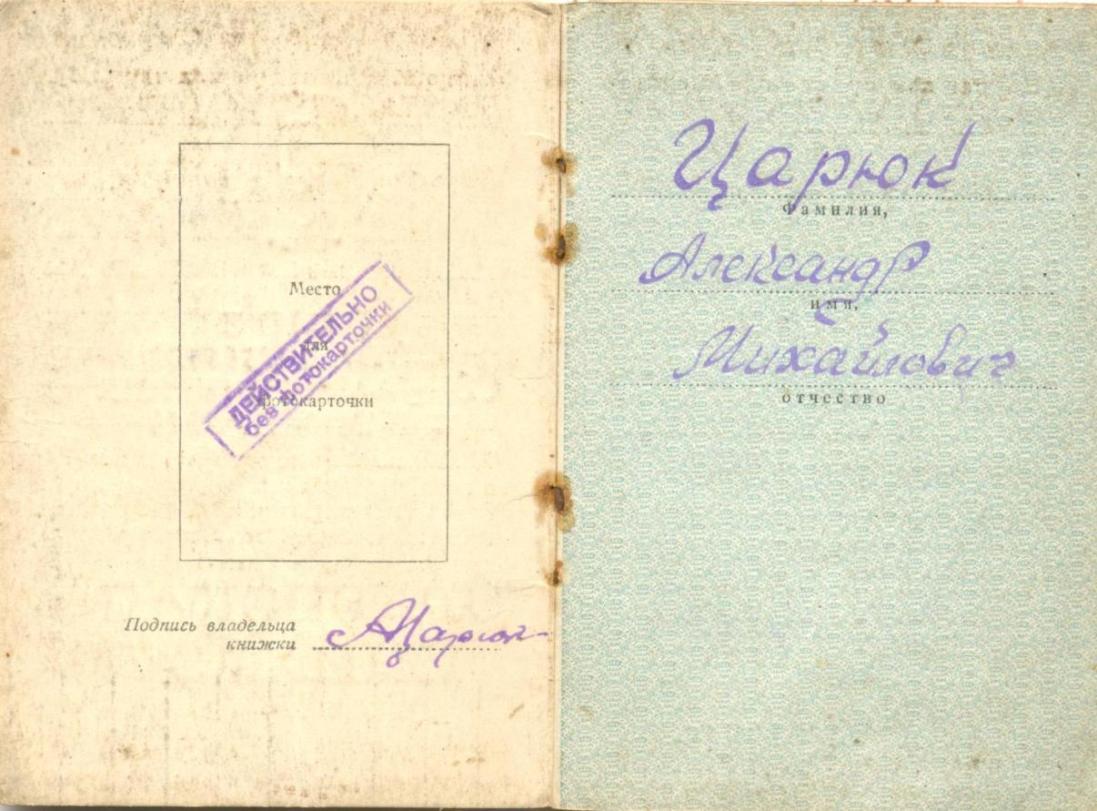 Место
для
фотокарточки
ДЕЙСТВИТЕЛЬНО
без фотокарточки
Подпись владельца
книжки
АЦарюк
Царюк
Фамилия,
Александр
имя,
Михайлович
отчество